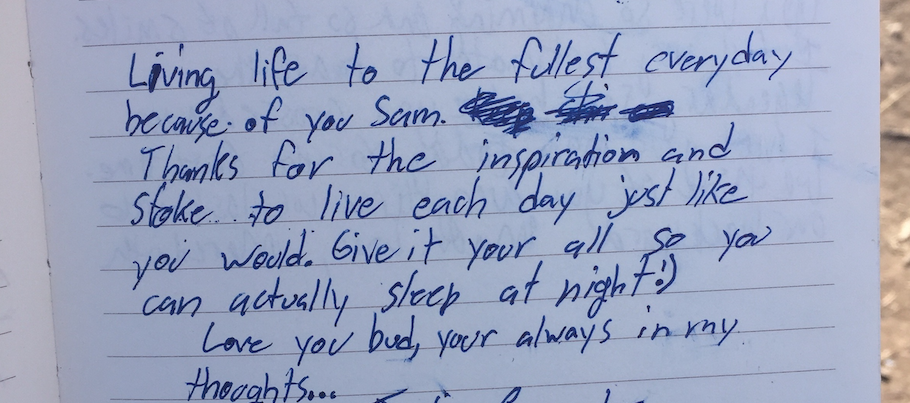 Living life to the fullest everyday
because of you Sam.
Thanks for the inspiration and
Stoke.. to live each day just like
you would. Give it your all so you
can actually sleep at night :)
Love you bud, your always in my
thoughts...